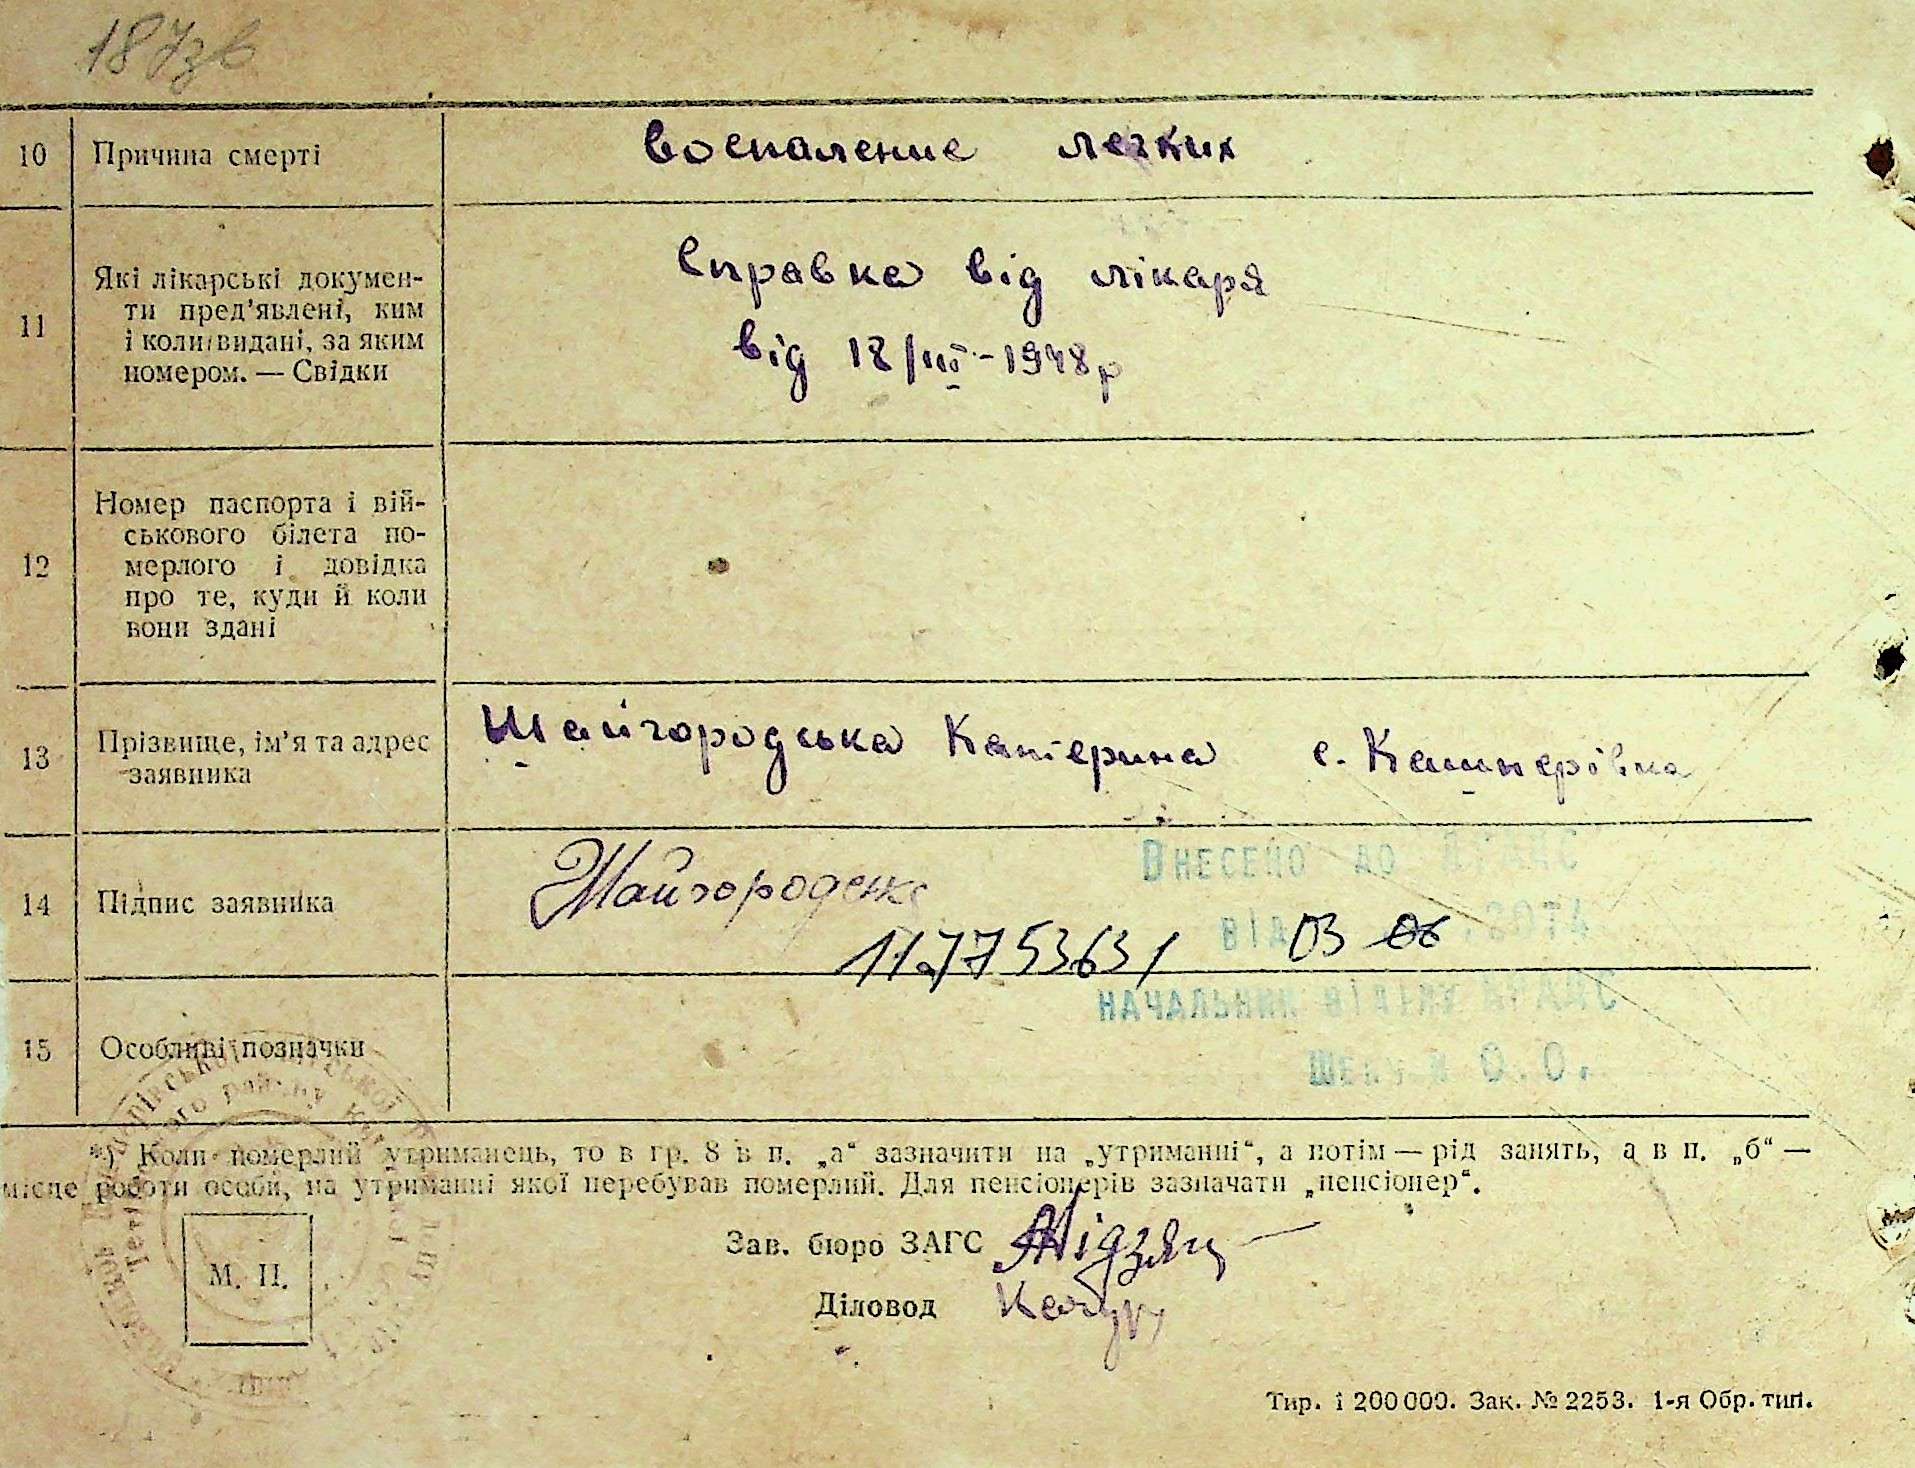 187зв
10 Причина смерті воспаление легких
11 Які лікарські докумен-
ти пред'явлені, ким
і коли видані, за яким
номером. — Свідки
Справка від лікаря
від 18/III-1948р
12 Номер паспорта і вій-
ськового білета по-
мерлого і довідка
про те, куди й коли
вони здані
13 Прізвище, ім'я та адрес
заявника
Шайгородська Катерина с. Кашперівка
14 Підпис заявника
Внесено до ДРАЦС
від 03 06
1177753631
НАЧАЛЬНИК ВІДДІЛУ ДРАЦС
О.О.
15 Особливі позначки
*) Коли померлий утриманець, то в гр. 8 в п. „а“ зазначити на „утриманні“, а потім — рід занять, а в п. „б“ —
місце роботи особи, на утриманні якої перебував померлий. Для пенсіонерів зазначати „пенсіонер“.
Зав. бюро ЗАГС
Діловод
М. П.
Тир. 1 200 000. Зак. № 2253. 1-я Обр. тип.